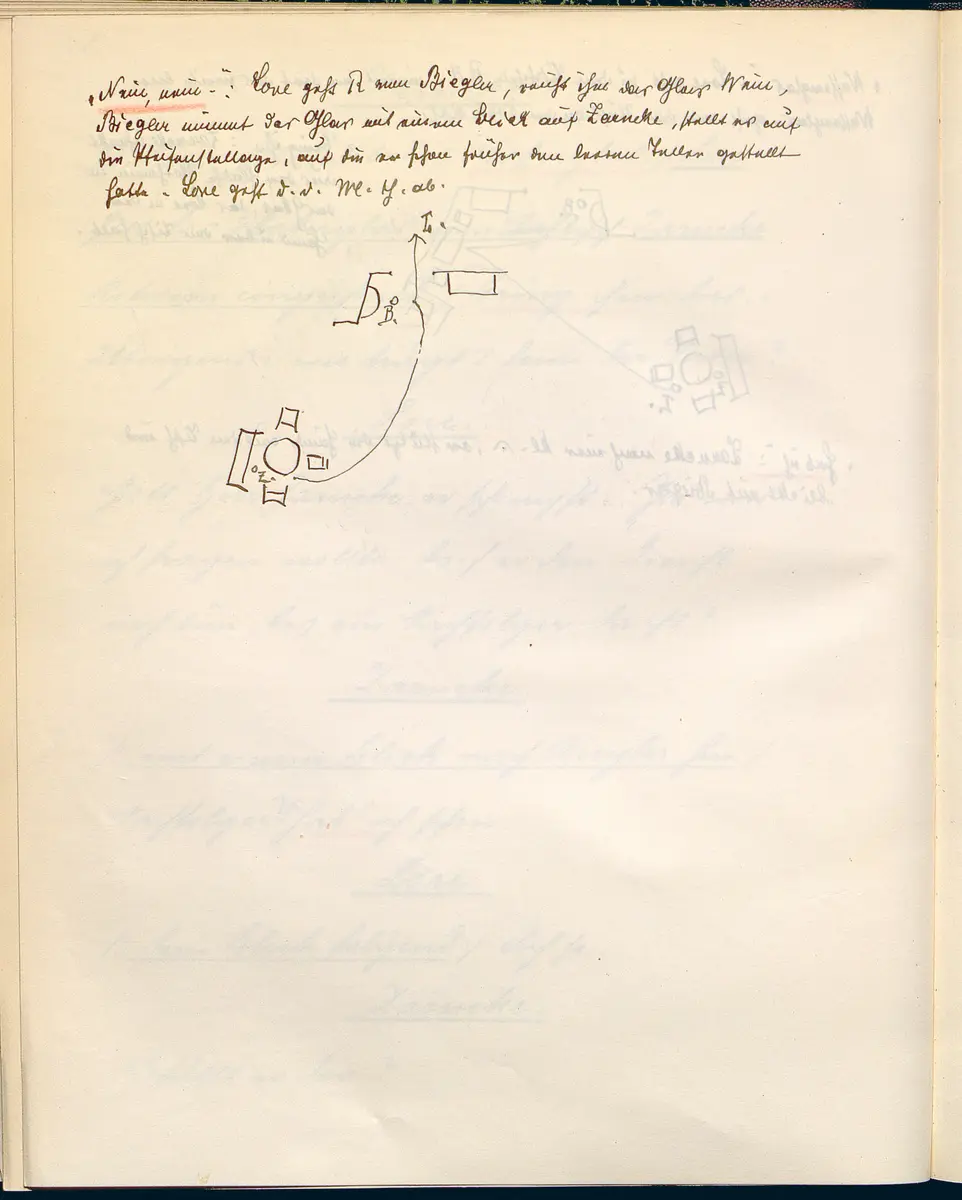 „Nein, nein -": Lore geht R von Biegler, reicht ihm das Glas Wein,
Biegler nimmt das Glas mit einem Blick auf Zarncke, stellt es auf
die Steifenstellage, auf die er schon früher den leeren Teller gestellt
hatte. Lore geht d. d. M. th. ab.
L.
B.
Z.